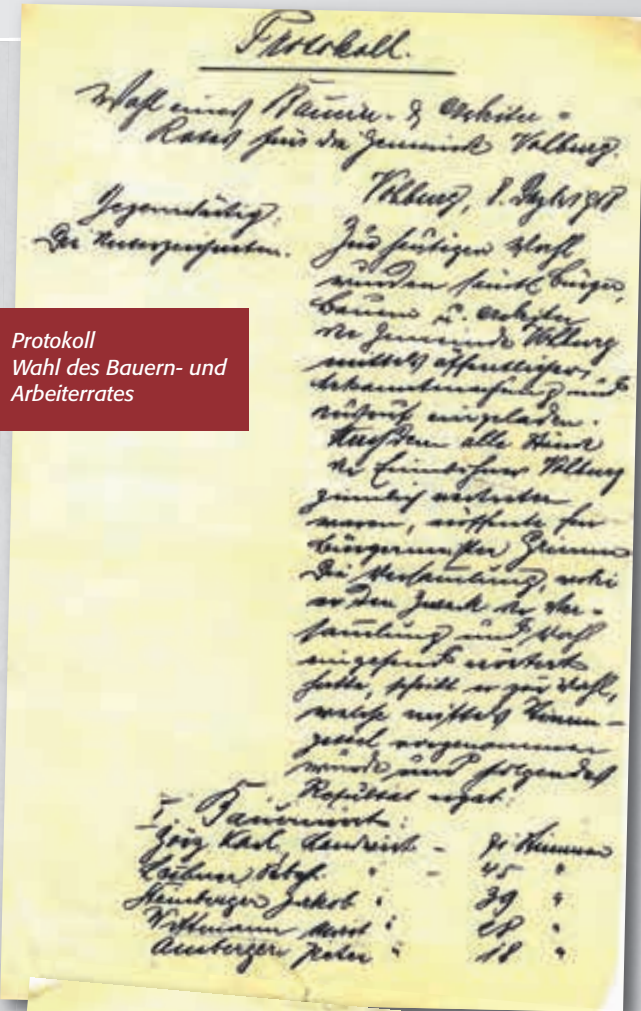 Protokoll.
Wahl eines Bauern- & Arbeiter-
Rates für die Gemeinde Velburg.
Velburg, 8. Dezbr 1918
Gegenwärtig:
Die Unterzeichneten.
Zur heutigen Wahl
wurden sämtl. Bürger,
Bauern u. Arbeiter
der Gemeinde Velburg
mittels öffentlicher
Bekanntmachung und
Ausruf eingeladen.
Nachdem alle Stände
der Einwohner Velburg
ziemlich vertreten
waren, eröffnete Herr
Bürgermeister Grimm
die Versammlung,
er den Zweck der Ver-
samlung und Wahl
eingehend erörtert
hatte, schritt er zur Wahl,
welche mittels Stimm-
zettel vorgenommen
wurde und folgendes
Resultat ergab:
I Bauernrat:
Karl, Landwirt - Stimmen
- 45 "
Jakob " 39 "
Wittmann " 28 "
Amberger Peter " 18 "
Protokoll
Wahl des Bauern- und
Arbeiterrates